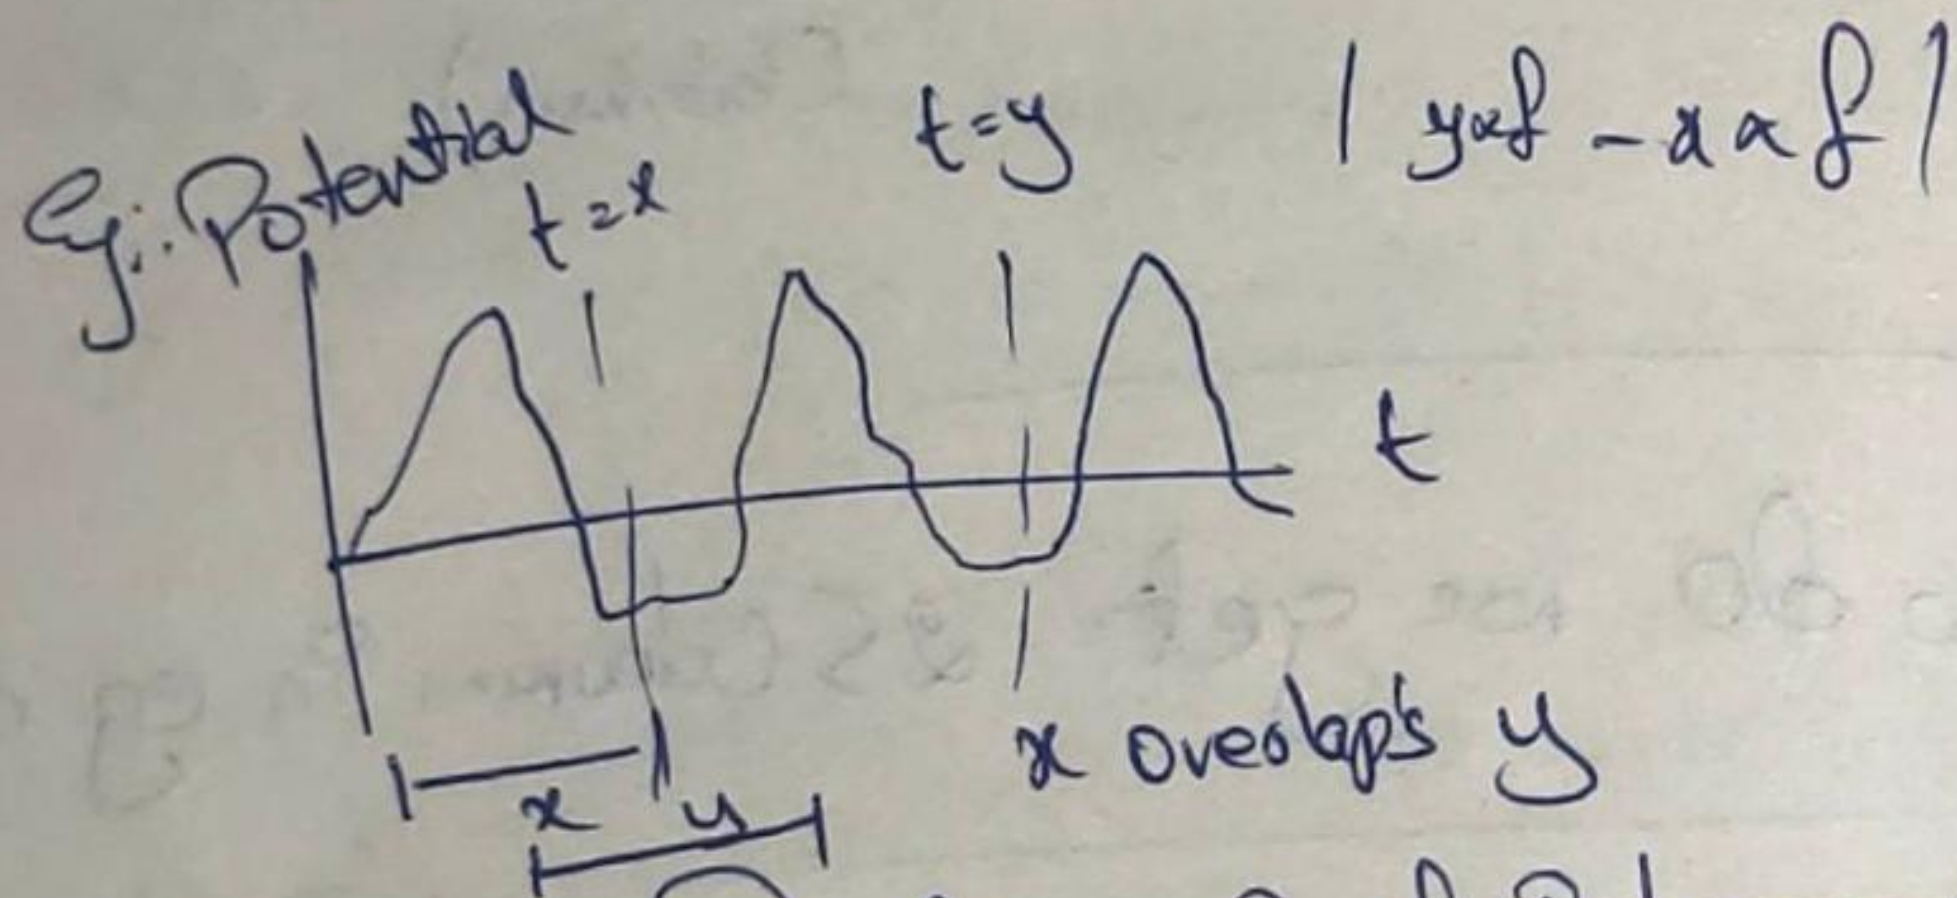 Eg:. Potential
t=x
t=y
| y∝f - x∝f |
t
x overlap's y
x
y